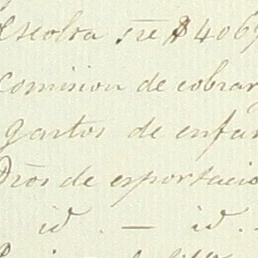 Escolta sre $ 406
Comision de cobra
gastos de enfa
Dros de esportacio
id. — id.